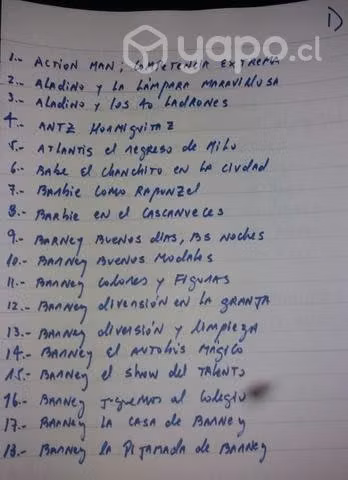 yapo.cl
1)
1.- ACTION MAN; COMPETENCIA EXTREMA
2.- ALADINO Y LA LÁMPARA MARAVILLOSA
3.- ALADINO Y LOS 40 LADRONES
4.- ANTZ HORMIGUITAZ
5.- ATLANTIS el regreso de Milo
6.- BABE EL CHANCHITO EN LA CIUDAD
7.- BARBIE COMO RAPUNZEL
8.- BARBIE EN EL CASCANUECES
9.- BARNEY BUENOS DIAS, BS NOCHES
10.- BARNEY BUENOS MODALES
11.- BARNEY COLORES Y FIGURAS
12.- BARNEY DIVERSIÓN EN LA GRANJA
13.- BARNEY DIVERSIÓN Y LIMPIEZA
14.- BARNEY EL AUTOBÚS MÁGICO
15.- BARNEY EL SHOW DEL TALENTO
16.- BARNEY JUGUEMOS AL COLEGIO
17.- BARNEY LA CASA DE BARNEY
18.- BARNEY LA PIJAMADA DE BARNEY